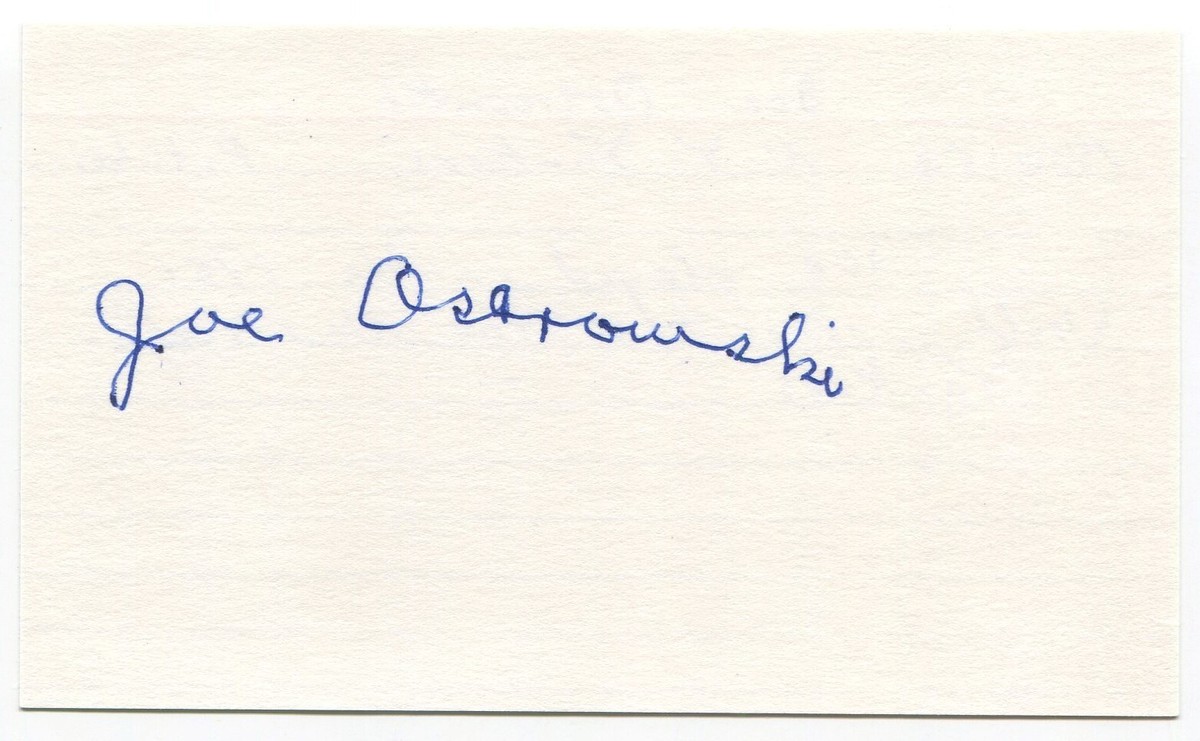 Joe Ostrowski